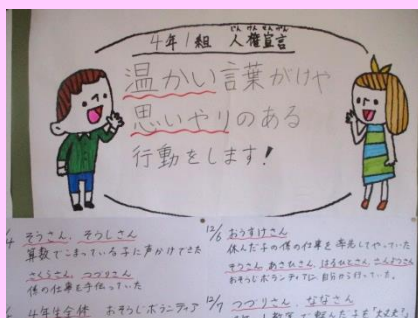 じんけんせんげん
4年1組 人権宣言
温かい言葉がけや
思いやりのある
行動をします!
そうさん、そうしさん
算数でこまっている子に声かけできた
さくらさん、つづりさん
係の仕事を手伝っていた
4年生全体 おそうじボランティア
12/6 おうすけさん
休んだ子の係の仕事を率先してやっていた
そうさん、あさひさん、はるひとさん、
おそうじボランティアに自分から行っていた。
12/7 つづりさん、ななさん